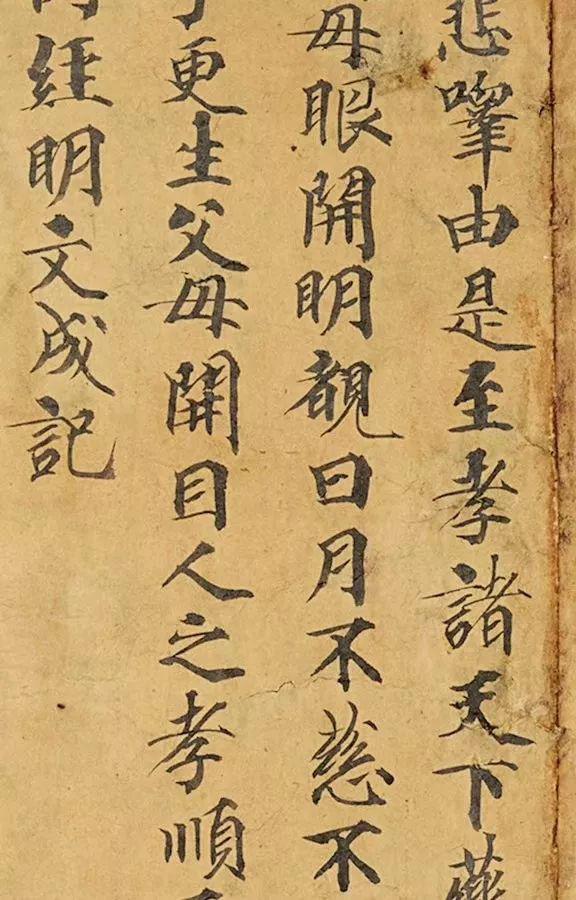 悲由是至孝諸天下藥
母眼開明覩日月不慈不
更生父母開目人之孝順
經明文成記